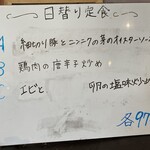 日替り定食
A 細切り豚とニンニクの芽のオイスターソース
B 鶏肉の唐辛子炒め
C エビと 明月の塩味
各97